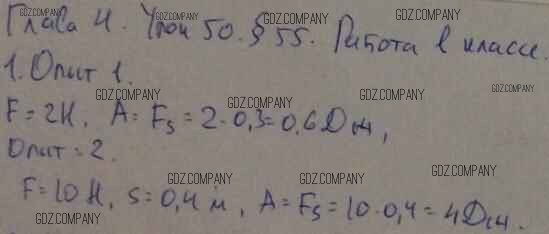 Глава 4. Урок 50. § 55. Работа в классе.
1. Опыт 1.
F = 2Н, A = Fs = 2·0,3 = 0,6 Дж,
Опыт 2.
F = 10 Н, s = 0,4 м, A = Fs = 10·0,4 = 4 Дж.
GDZ.COMPANY
GDZ.COMPANY
GDZ.COMPANY
GDZ.COMPANY
GDZ.COMPANY
GDZ.COMPANY
GDZ.COMPANY
GDZ.COMPANY
GDZ.COMPANY
GDZ.COMPANY
GDZ.COMPANY
GDZ.COMPANY